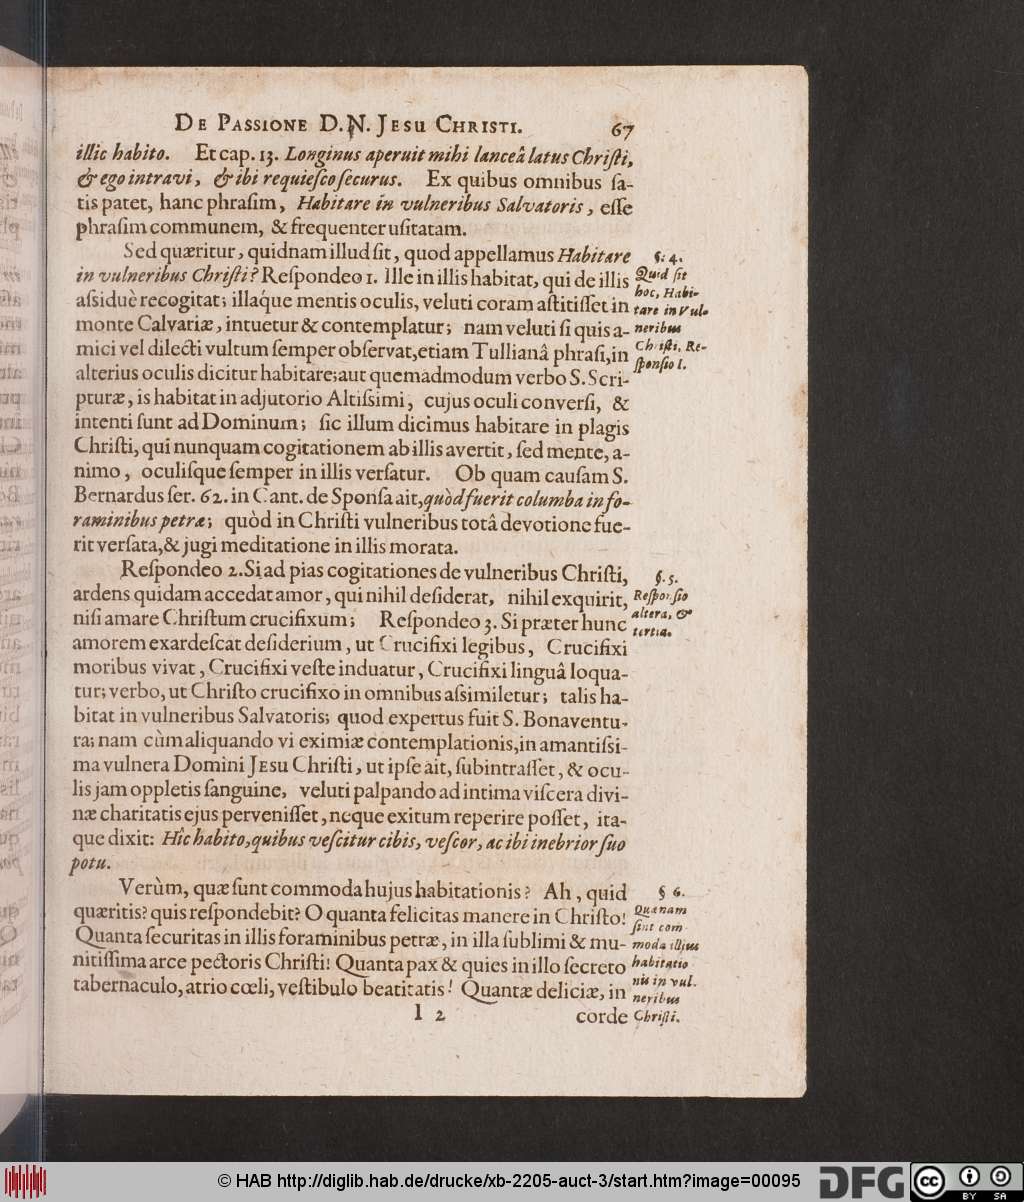 De Passione D.N. Jesu Christi. 67
illic habito. Et cap. 13. Longinus aperuit mihi lanceâ latus Chriſti,
& ego intravi, & ibi requieſco ſecurus. Ex quibus omnibus ſa-
tis patet, hanc phraſim, Habitare in vulneribus Salvatoris, eſſe
phraſim communem, & frequenter uſitatam.
Sed quæritur, quidnam illud ſit, quod appellamus Habitare
in vulneribus Chriſti? Reſpondeo 1. Ille in illis habitat, qui de illis
aſsiduè recogitat; illáque mentis oculis, veluti coram aſtitiſſet in
monte Calvariæ, intuetur & contemplatur; nam veluti ſi quis a-
mici vel dilecti vultum ſemper obſervat, etiam Tullianâ phraſi, in
alterius oculis dicitur habitare; aut quemadmodum verbo S. Scri-
pturæ, is habitat in adjutorio Altiſsimi, cujus oculi converſi, &
intenti ſunt ad Dominum; ſic illum dicimus habitare in plagis
Chriſti, qui nunquam cogitationem ab illis avertit, ſed mente, a-
nimo, oculiſque ſemper in illis verſatur. Ob quam cauſam S.
Bernardus ſer. 62. in Cant. de Sponſa ait, quòd fuerit columba in fo-
raminibus petræ; quòd in Chriſti vulneribus totâ devotione fue-
rit verſata, & jugi meditatione in illis morata.
§. 4.
Quid ſit
hoc, Habi-
tare in Vul-
neribus
Chriſti, Re-
ſponſio 1.
Reſpondeo 2. Si ad pias cogitationes de vulneribus Chriſti,
ardens quidam accedat amor, qui nihil deſiderat, nihil exquirit,
niſi amare Chriſtum crucifixum; Reſpondeo 3. Si præter hunc
amorem exardeſcat deſiderium, ut Crucifixi legibus, Crucifixi
moribus vivat, Crucifixi veſte induatur, Crucifixi linguâ loqua-
tur; verbo, ut Chriſto crucifixo in omnibus aſsimiletur; talis ha-
bitat in vulneribus Salvatoris; quod expertus fuit S. Bonaventu-
ra; nam cùm aliquando vi eximiæ contemplationis, in amantiſsi-
ma vulnera Domini Jesu Chriſti, ut ipſe ait, ſubintraſſet, & ocu-
lis jam oppletis ſanguine, veluti palpando ad intima viſcera divi-
næ charitatis ejus perveniſſet, neque exitum reperire poſſet, ita-
que dixit: Hîc habito, quibus veſcitur cibis, veſcor, ac ibi inebrior ſuo
potu.
§. 5.
Reſponſio
altera, &
tertia.
Verùm, quæ ſunt commoda hujus habitationis? Ah, quid
quæritis? quis reſpondebit? O quanta felicitas manere in Chriſto!
Quanta ſecuritas in illis foraminibus petræ, in illa ſublimi & mu-
nitiſſima arce pectoris Chriſti! Quanta pax & quies in illo ſecreto
tabernaculo, atrio cœli, veſtibulo beatitatis! Quantæ deliciæ, in
§ 6.
Quænam
ſint com-
moda illius
habitatio
nis in vul-
neribus
Chriſti.
l 2 corde
© HAB http://diglib.hab.de/drucke/xb-2205-auct-3/start.htm?image=00095
DFG
cc BY SA